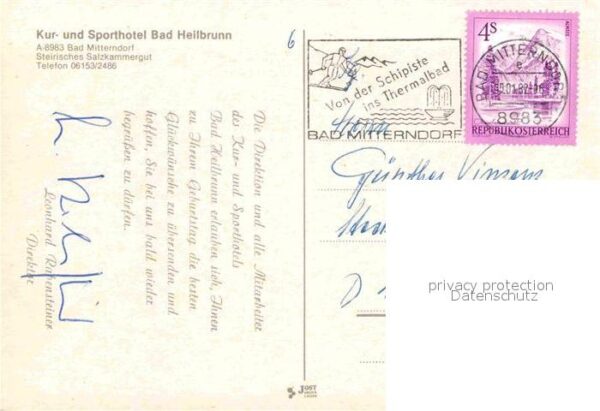 Kur- und Sporthotel Bad Heilbrunn
A-8983 Bad Mitterndorf
Steirisches Salzkammergut
Telefon 06153/2486
6
Von der Schipiste
ins Thermalbad
BAD MITTERNDORF
4S
REPUBLIK ÖSTERREICH
BAD MITTERNDORF
8983
Die Direktion und alle Mitarbeiter
des Kur- und Sporthotels
Bad Heilbrunn erlauben sich, Ihnen
zu Ihrem Geburtstag die besten
Glückwünsche zu übersenden und
hoffen, Sie bei uns bald wieder
begrüßen zu dürfen.
Leonhard Rabensteiner
Direktor
Herrn
Günther
D
privacy protection
Datenschutz
JOST